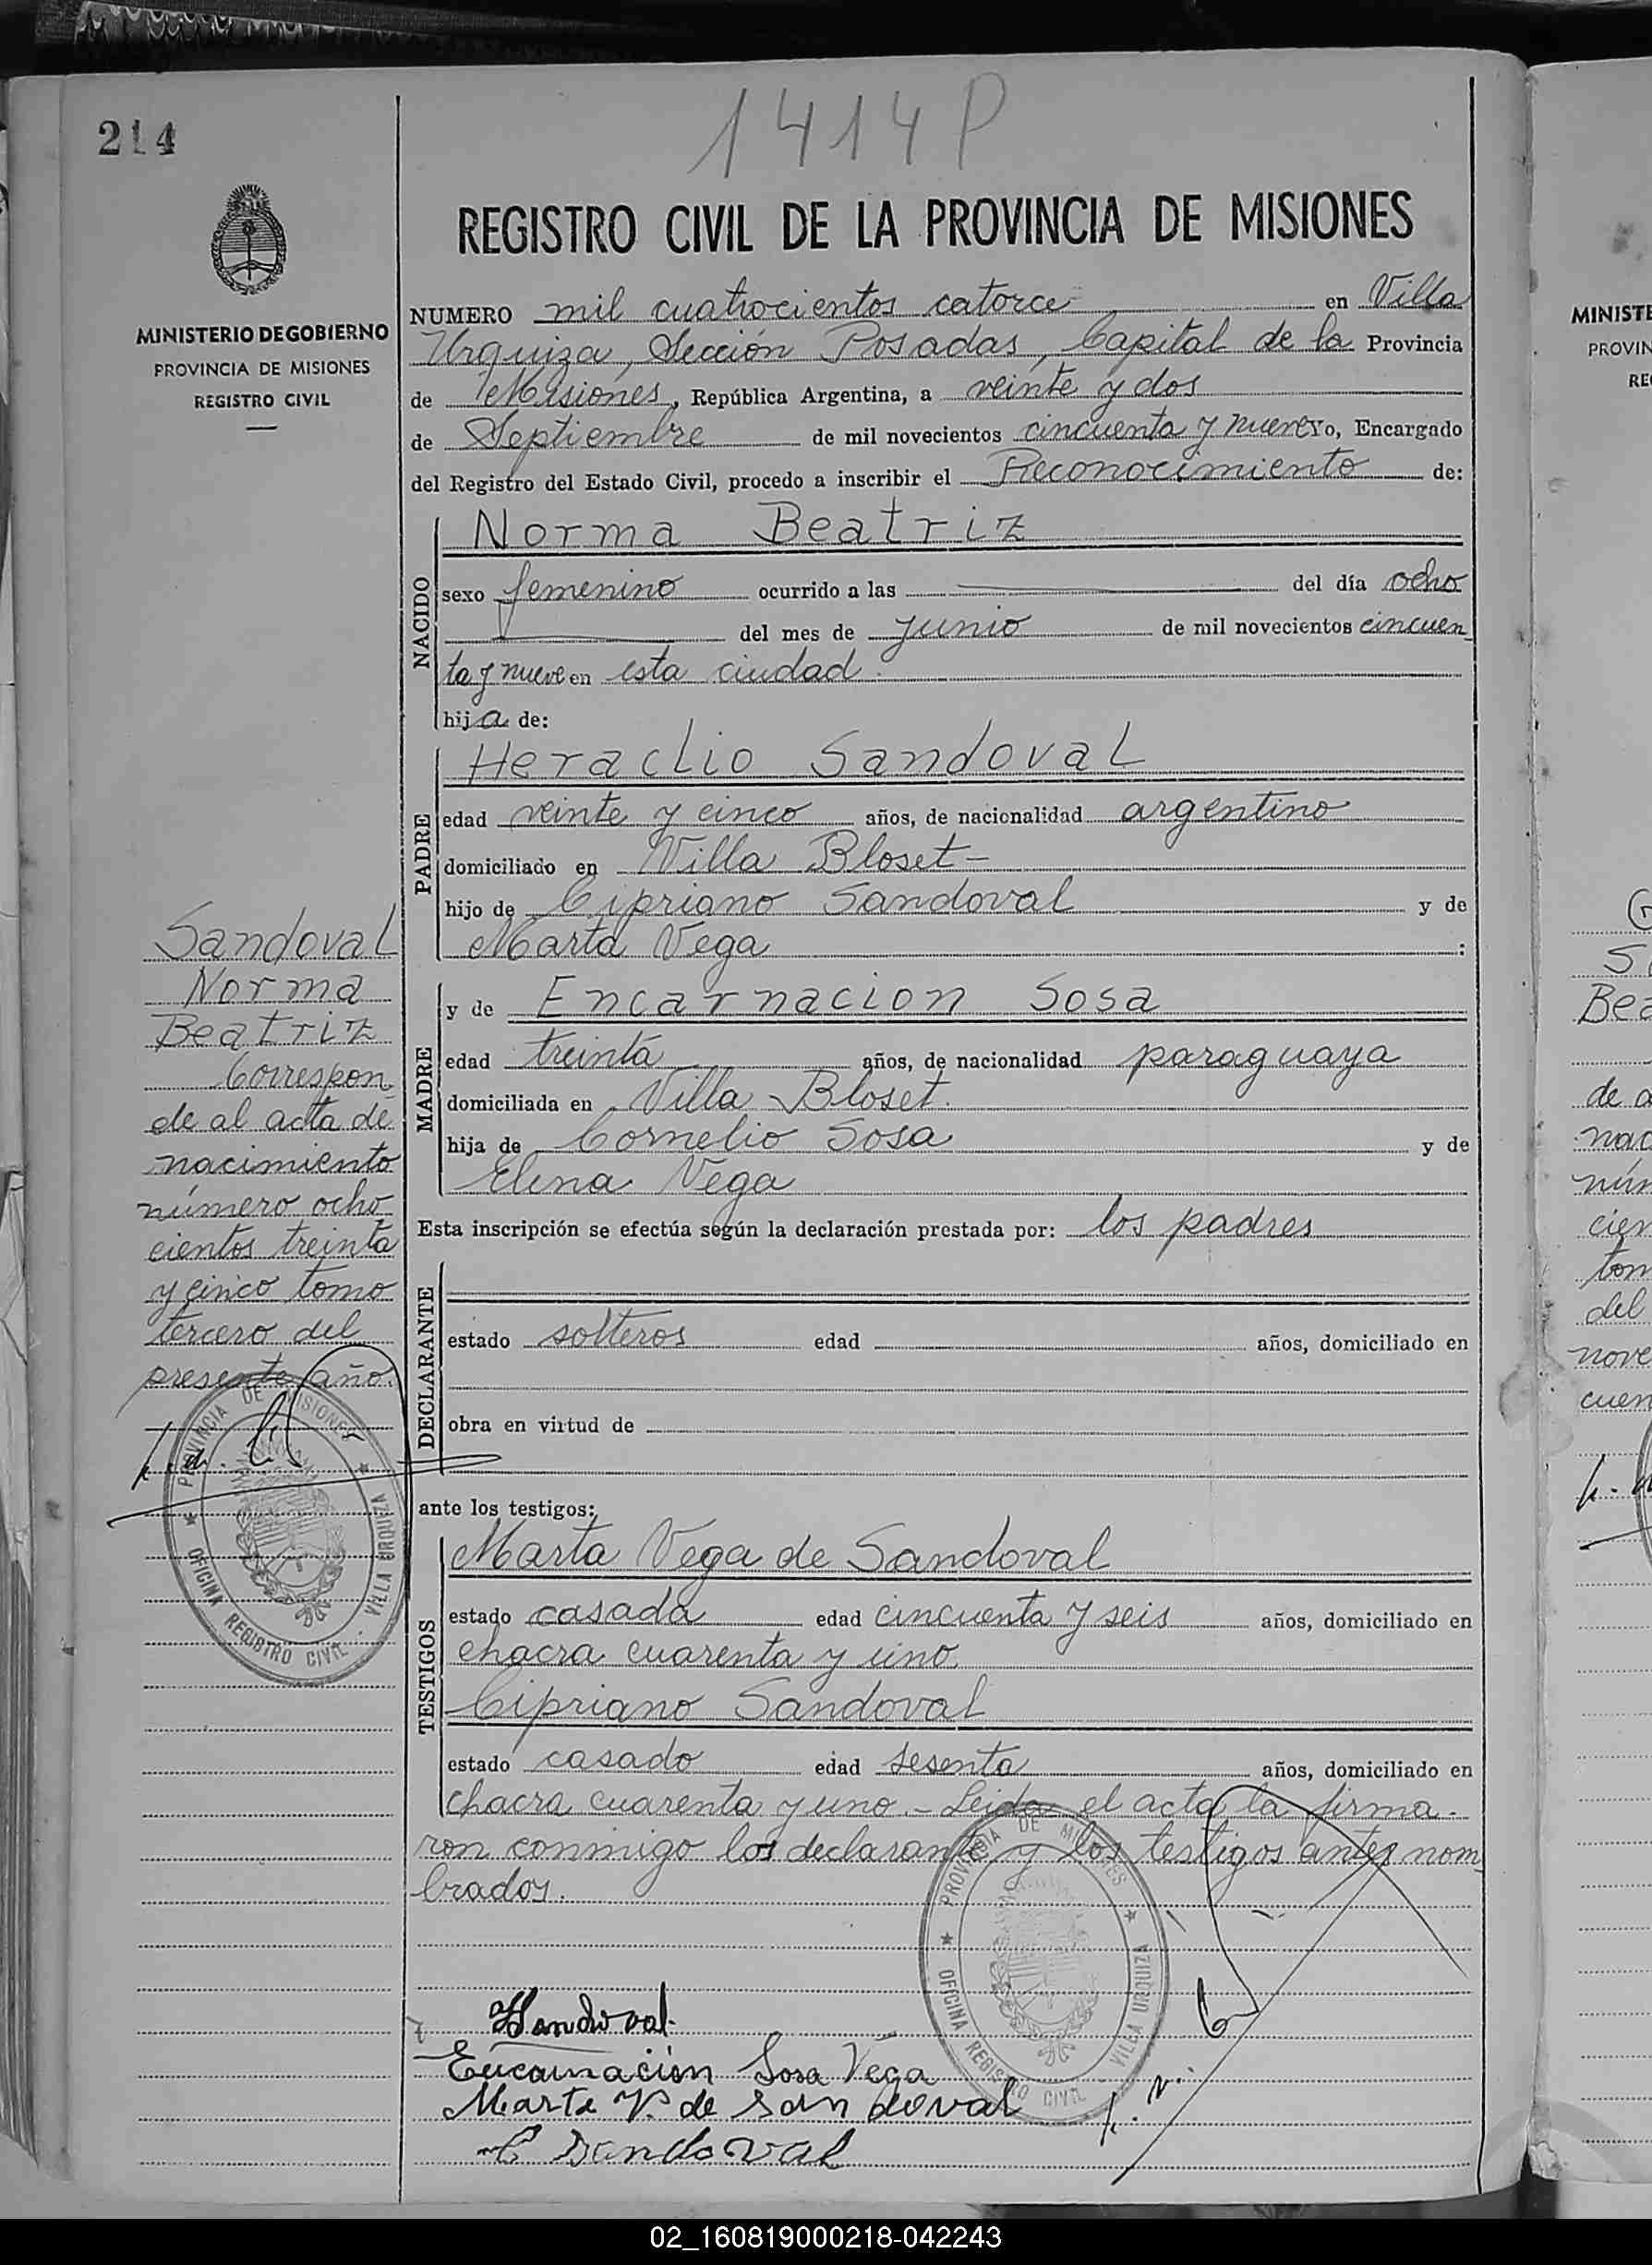 214
1414 P
MINISTERIO DE GOBIERNO
PROVINCIA DE MISIONES
REGISTRO CIVIL
REGISTRO CIVIL DE LA PROVINCIA DE MISIONES
NUMERO mil cuatrocientos catorce en Villa
Urquiza, Sección Posadas, Capital de la Provincia
de Misiones, República Argentina, a veinte y dos
de Septiembre de mil novecientos cincuenta y nueve yo, Encargado
del Registro del Estado Civil, procedo a inscribir el Reconocimiento de:
NACIDO
Norma Beatriz
sexo femenino ocurrido a las del día ocho
del mes de junio de mil novecientos cincuen
ta y nueve en esta ciudad.
hija de:
PADRE
Heraclio Sandoval
edad veinte y cinco años, de nacionalidad argentino
domiciliado en Villa Bloset-
hijo de Cipriano Sandoval y de
Marta Vega :
MADRE
y de Encarnacion Sosa
edad treinta años, de nacionalidad paraguaya
domiciliada en Villa Bloset.
hija de Cornelio Sosa y de
Elena Vega
Esta inscripción se efectúa según la declaración prestada por: los padres
DECLARANTE
estado solteros edad años, domiciliado en
obra en virtud de
ante los testigos:
TESTIGOS
Marta Vega de Sandoval
estado casada edad cincuenta y seis años, domiciliado en
chacra cuarenta y uno
Cipriano Sandoval
estado casado edad sesenta años, domiciliado en
chacra cuarenta y uno.- Leida el acta la firma-
ron conmigo los declarante y los testigos antes nom
brados.
HSandoval.
Encarnación Sosa Vega
Marta V. de Sandoval
C Sandoval
PROVINCIA DE MISIONES
OFICINA REGISTRO CIVIL VILLA URQUIZA
Sandoval
Norma
Beatriz
Correspon
de al acta de
nacimiento
número ocho
cientos treinta
y cinco tomo
tercero del
presente año.
PROVINCIA DE MISIONES
OFICINA REGISTRO CIVIL VILLA URQUIZA
MINISTE
PROVIN
RE
S
Bea
de a
nac
núm
cien
tom
del
nove
cuen
02_160819000218-042243